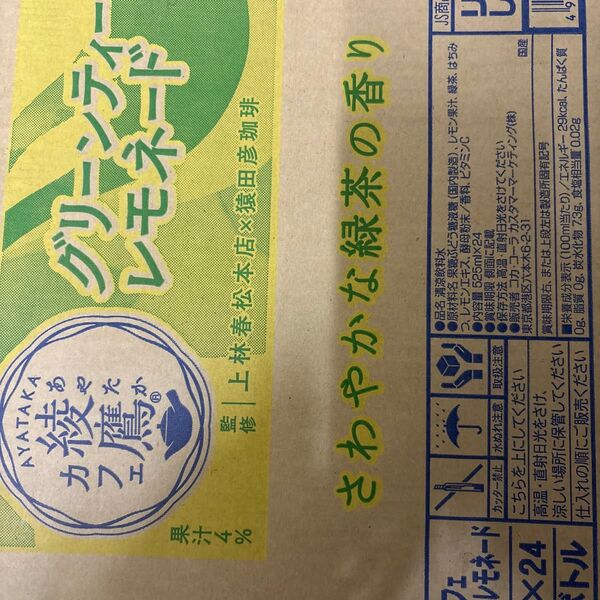 グリーンティー
レモネード
AYATAKA
あやたか
綾鷹®
カフェ
監修 上林春松本店×猿田彦珈琲
果汁4%
さわやかな緑茶の香り
JS商
●品名 清涼飲料水
●原材料名 果糖ぶどう糖液糖(国内製造)、レモン果汁、緑茶、はちみ
つ、レモンエキス、酵母粉末/香料、ビタミンC
●内容量 525ml×24
●賞味期限 側面に記載
●保存方法 高温・直射日光をさけてください
●販売者 コカ・コーラ カスタマーマーケティング(株)
東京都港区六本木6-2-31
国産
賞味期限右、または上段左は製造所固有記号
■栄養成分表示(100ml当たり)/エネルギー 29kcal、たんぱく質
0g、脂質 0g、炭水化物 7.3g、食塩相当量 0.02g
カッター禁止
水ぬれ注意
取扱注意
こちらを上にしてください
高温・直射日光をさけ、
涼しい場所に保管してください
仕入れの順にご販売ください
フェ
レモネード
×24
ボトル